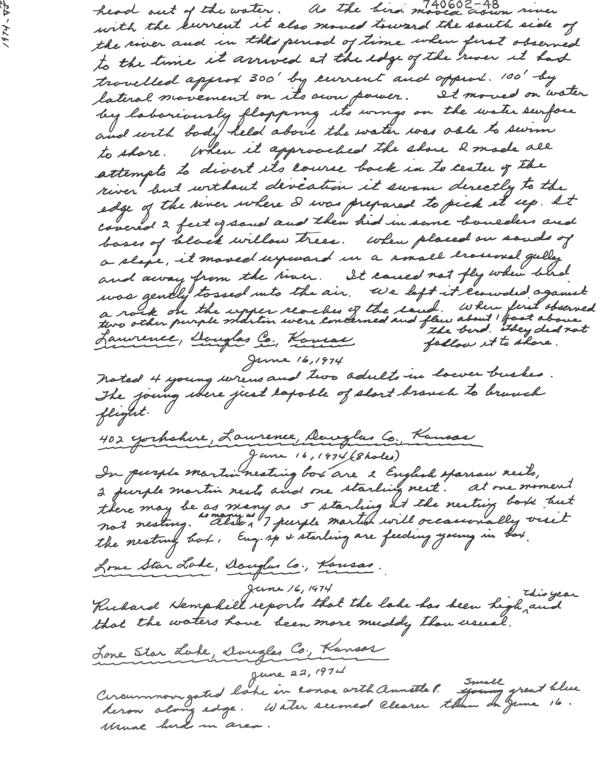 740602-48
head out of the water. As the bird moved down river
with the current it also moved toward the south side of
the river and in this period of time when first observed
to the time it arrived at the edge of the river it had
travelled approx 300' by current and approx. 100' by
lateral movement on its own power. It moved on water
by laboriously flopping its wings on the water surface
and with body held above the water was able to swim
to shore. When it approached the shore I made all
attempts to divert its course back in to center of the
river but without deviation it swam directly to the
edge of the river where I was prepared to pick it up. It
covered 2 feet of sand and then hid in some boulders and
bases of black willow trees. When placed on sands of
a slope, it moved upward in a small erosional gully
and away from the river. It could not fly when bird
was gently tossed into the air. We left it crowded against
a rock on the upper reaches of the sand. When first observed
two other purple martin were concerned and flew about 1 foot above
the bird. They did not
follow it to shore.
Lawrence, Douglas Co., Kansas
June 16, 1974
Noted 4 young wrens and two adults in lower bushes.
The young were just capable of short branch to branch
flight.
402 Yorkshire, Lawrence, Douglas Co., Kansas
June 16, 1974 (8 holes)
In purple martin nesting box are 2 English sparrow nests,
2 purple martin nests and one starling nest. At one moment
there may be as many as 5 starling at the nesting box but
not nesting. Also as many as 7 purple martin will occasionally visit
the nesting box. Eng. sp & starling are feeding young in box.
Lone Star Lake, Douglas Co., Kansas.
June 16, 1974
Richard Hemphill reports that the lake has been high this year and
that the waters have been more muddy than usual.
Lone Star Lake, Douglas Co., Kansas
June 22, 1974
Circumnavigated lake in canoe with Annette P. Small young great blue
heron along edge. Water seemed clearer than on June 16.
Usual birds in area.